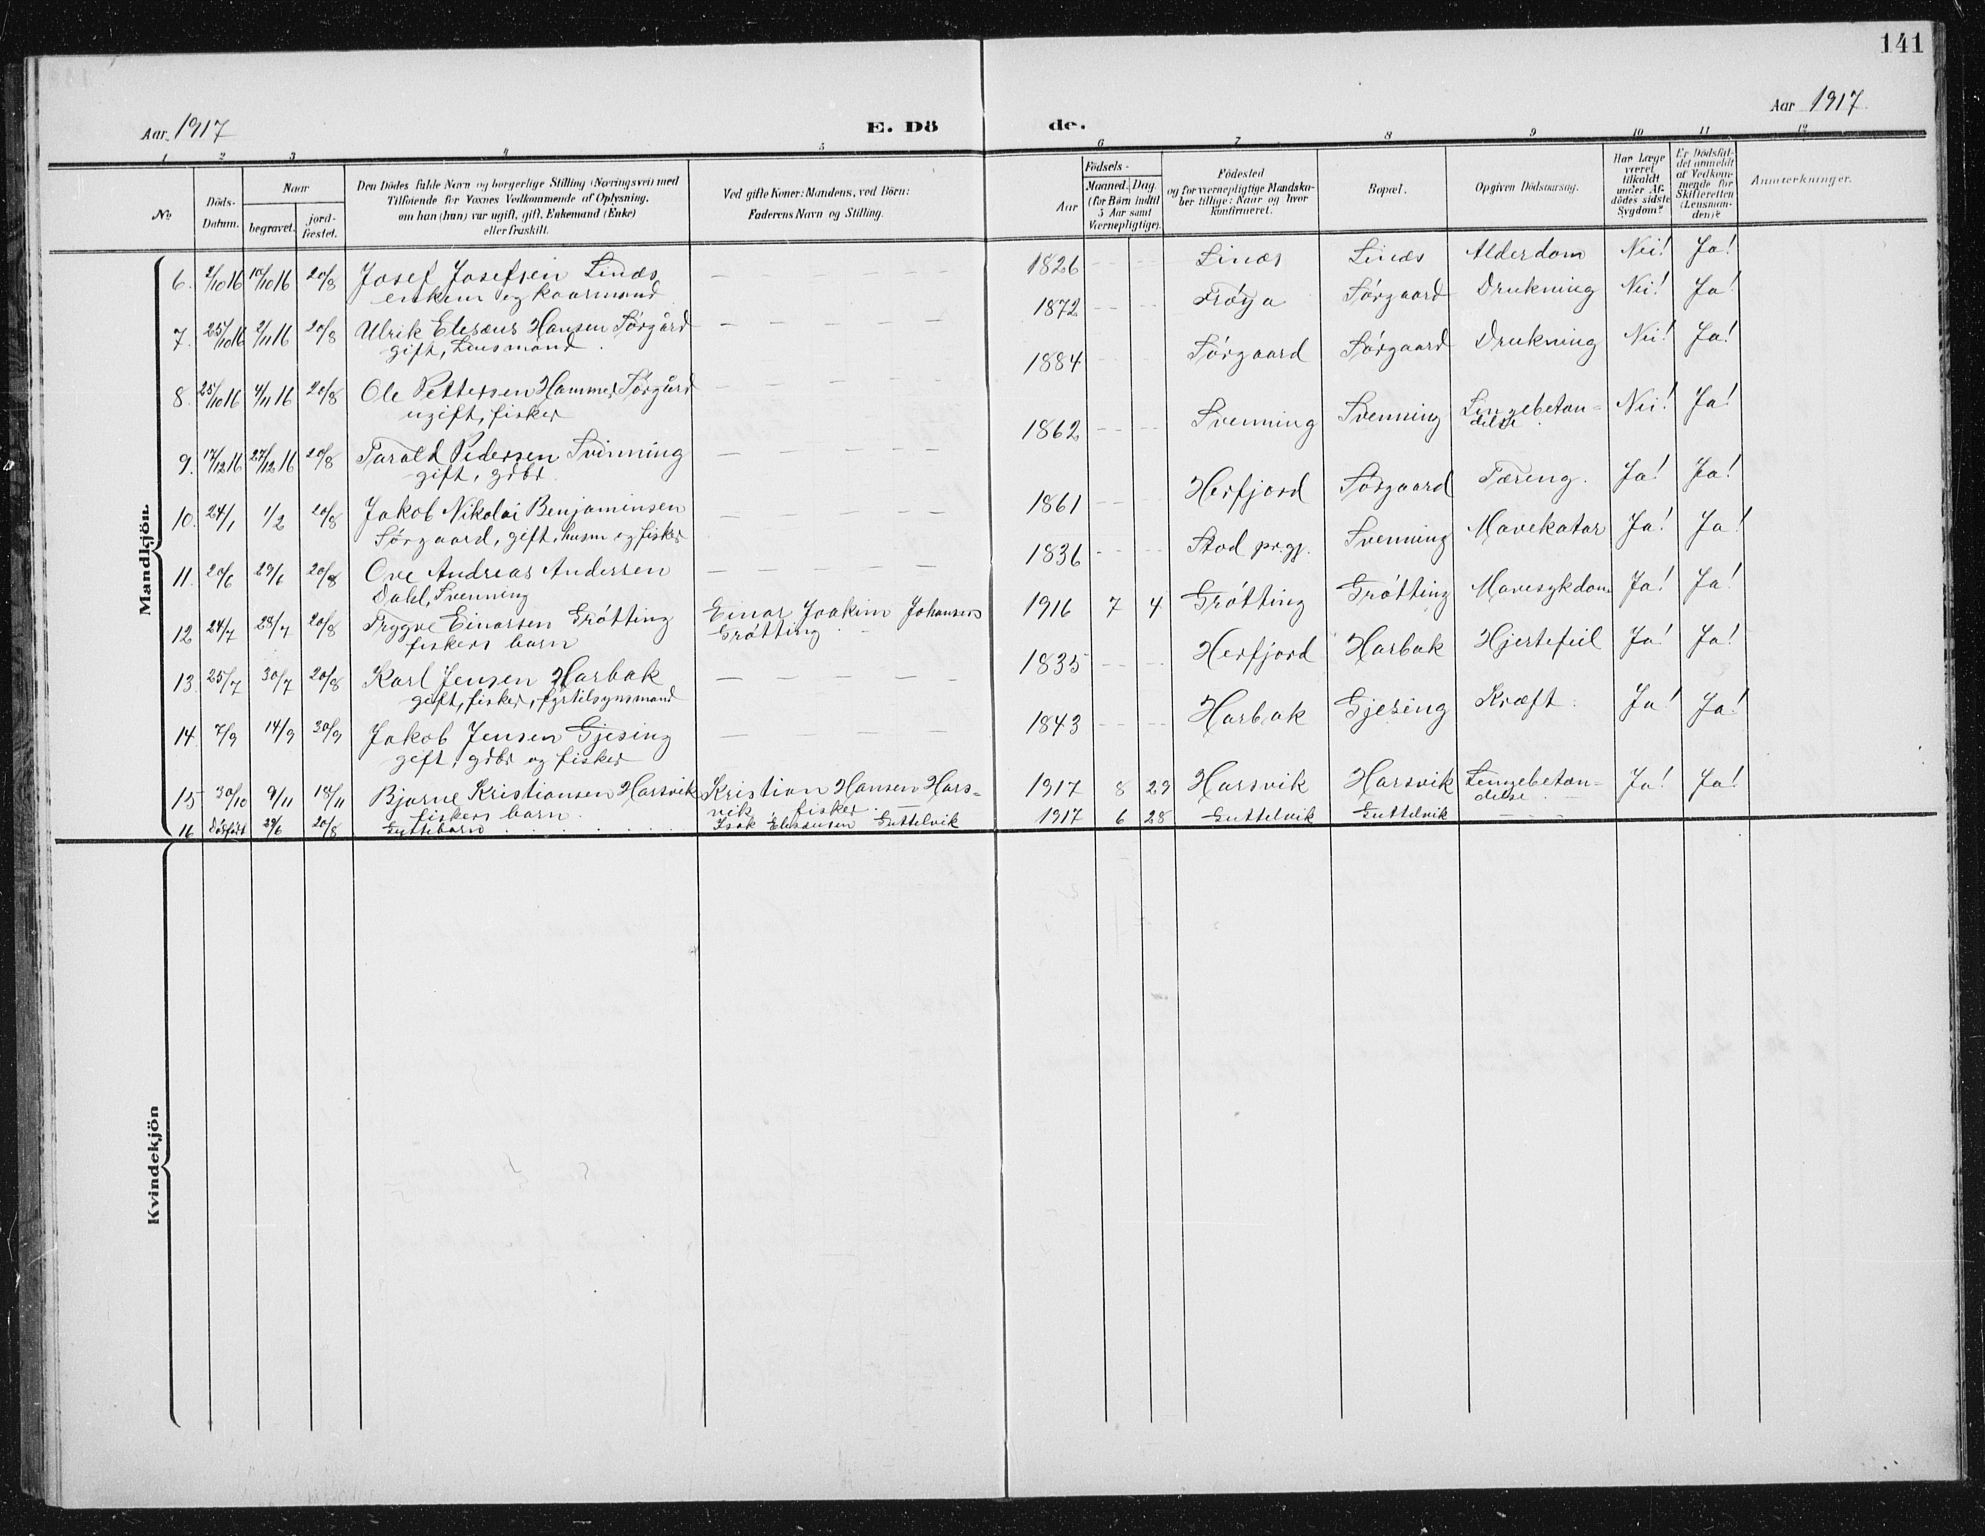 141
Aar 1917
E. Dö
de.
Aar 1917.
1 2 3 4 5 6 7 8 9 10 11 12
No
Döds-
Datum.
Naar
begravet.
jord-
fæstet.
Den Dödes fulde Navn og borgerlige Stilling (Næringsvei) med
Tilföiende for Voxnes Vedkommende af Oplysning,
om han (hun) var ugift, gift, Enkemand (Enke)
eller fraskilt.
Ved gifte Koner: Mandens, ved Börn:
Faderens Navn og Stilling.
Födsels-
Aar
Maaned. Dag.
(for Börn indtil
5 Aar samt
Værnepligtige).
Födested
og for værnepligtige Mandska-
ber tillige: Naar og hvor
konfirmeret.
Bopæl.
Opgiven Dödsaarsag.
Har Læge
været
tilkaldt
under Af-
dödes sidste
Sygdom?
Er Dödsfal-
det anmeldt
af Vedkom-
mende for
Skifteretten
(Lensman-
den)?
Anmærkninger.
Mandkjön.
6. 2/10 16 10/10 16 20/8 Josef Josefsen Linæs — — — — 1826 -- -- Linæs Linæs Alderdom Nei! Ja!
enkem og kaarmand
7. 25/10 16 2/11 16 20/8 Ulrik Eliseus Hansen Sørgård — — — — 1872 -- -- Frøya Sørgaard Drukning Nei! Ja!
gift, Lensmand.
8. 25/10 16 4/11 16 20/8 Ole Pettersen Hammer Sørgård — — — — 1884 -- -- Sørgaard Sørgaard Drukning Nei! Ja!
ugift, fisker
9. 17/12 16 27/12 16 20/8 Tarald Pedersen Svenning — — — — 1862 -- -- Svenning Svenning Lungebetæn- Nei! Ja!
gift, gdbr. delse.
10. 24/1 1/2 20/8 Jakob Nikolai Benjaminsen — — — — 1861 -- -- Herfjord Sørgaard Tæring. Ja! Ja!
Sørgaard, gift, husm og fisker
11. 20/6 29/6 20/8 Ove Andreas Andersen — — — — 1836 -- -- Stod pr.gj. Svenning Mavekatar Ja! Ja!
Dahl, Svenning
12 24/7 28/7 20/8 Trygve Einarsen Grøtting Einar Joakim Johansen 1916 7 4 Grøtting Grøtting Mavesykdom Ja! Ja!
fiskers barn Grøtting
13. 25/7 30/7 20/8 Karl Jensen Harbak — — — — 1835 -- -- Herfjord Harbak Hjertefeil Ja! Ja!
gift, fisker, fyrtilsynsmand
14. 7/9 14/9 30/9 Jakob Jensen Gjesing — — — — 1843 -- -- Harbak Gjesing Kræft. Ja! Ja!
gift, gdbr og fisker
15 30/10 9/11 18/11 Bjarne Kristiansen Harsvik Kristian Hansen Hars- 1917 8 29 Harsvik Harsvik Lungebetæn- Ja! Ja!
fiskers barn. vik, fisker. delse.
16. Dødfødt 29/6 20/8 Guttebarn Isak Eliseusen Guttelvik 1917 6 28 Guttelvik Guttelvik — — —
Kvindekjön